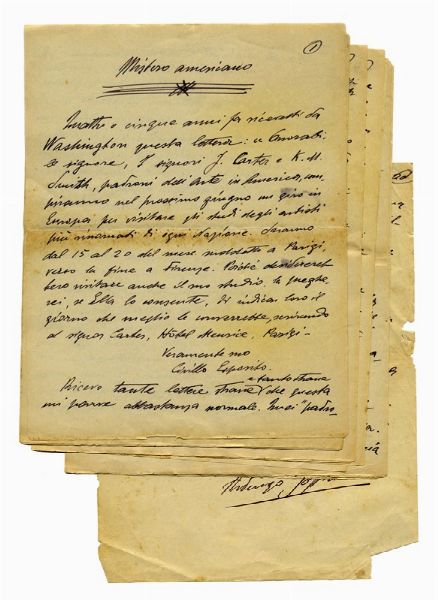 1
Mistero americano
Quattro o cinque anni fa ricevetti da
Washington questa lettera: « Onorabi-
le signore, I signori J. Carter e K. M.
Smith, padroni dell'Arte in America, com
piranno nel prossimo giugno un giro in
Europa per visitare gli studi degli artisti
più rinomati di ogni nazione. Saranno
dal 15 al 20 del mese suddetto a Parigi,
verso la fine a Firenze. Poiché desidereb
bero visitare anche il suo studio, la preghe
rei, se Ella lo consente, di indicar loro il
giorno che meglio le converrebbe, scrivendo
al signor Carter, Hôtel Meurice, Parigi -
Veramente suo
Cirillo Esposito.
Ricevo tante lettere strane e tanto strane che questa
mi parve abbastanza normale. Quei "padro-
Ardengo Soffici